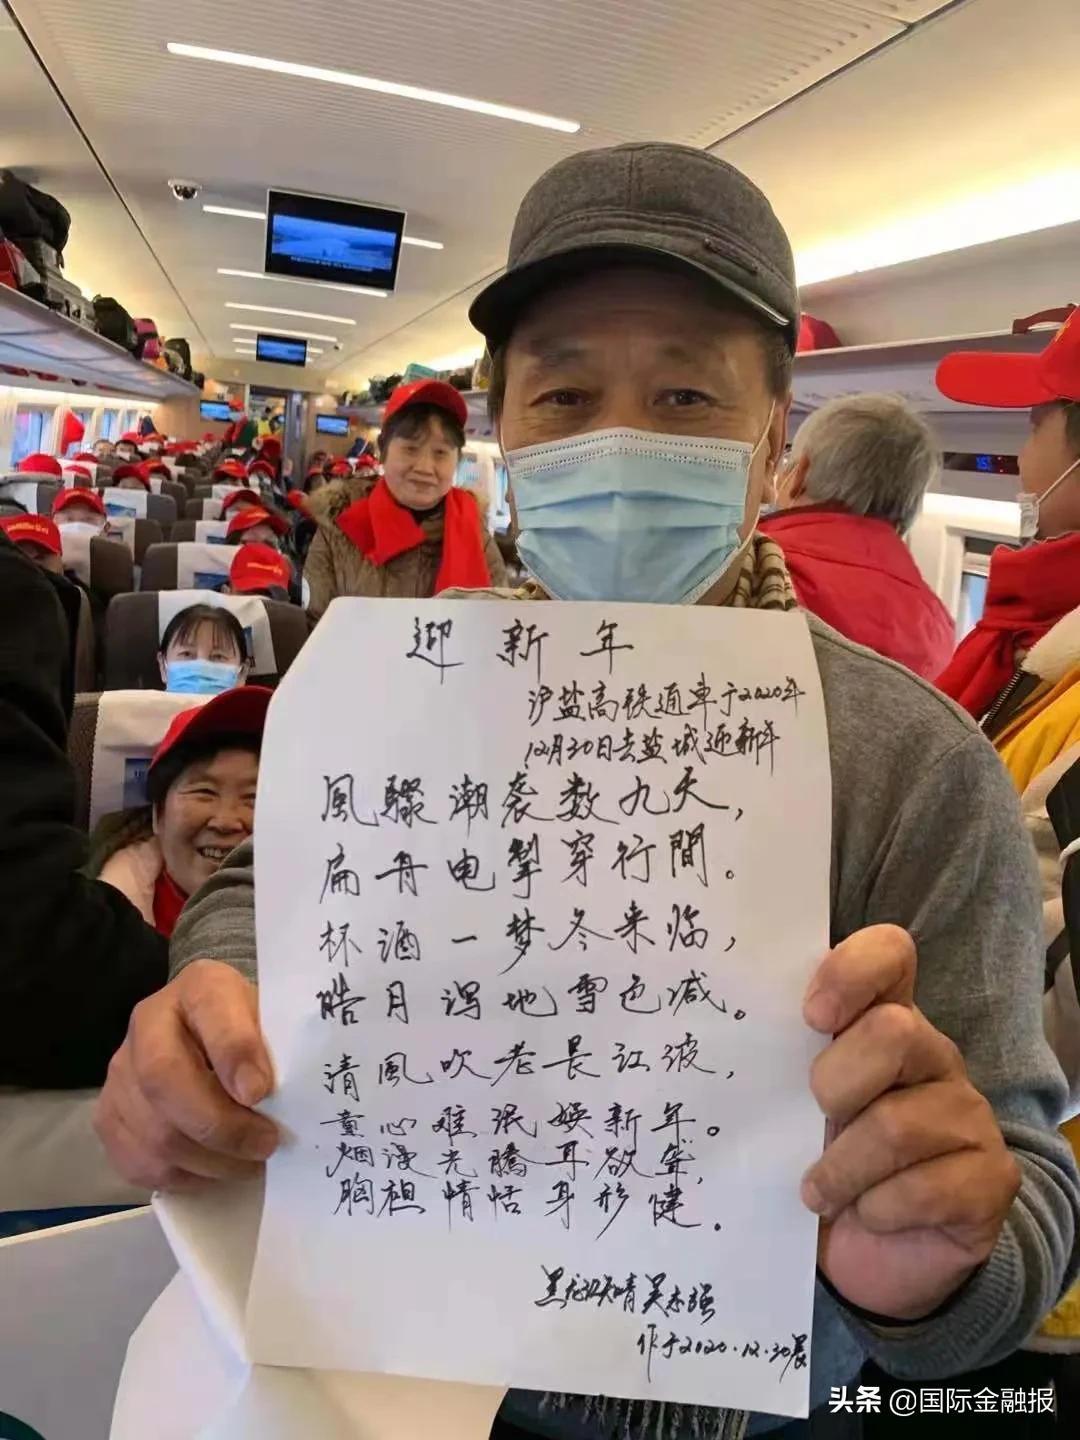 迎新年
沪盐高铁通车于2020年
12月30日去盐城迎新年
風驟潮袭数九天，
扁舟电掣穿行間。
杯酒一梦冬来临，
皓月泻地雪色减。
清風吹老長江波，
童心难泯娱新年。
烟漫光腾耳欲聋，
胸袒情恬身形健。
黑龙江知青吴志强
作于2020.12.30晨
头条 @国际金融报